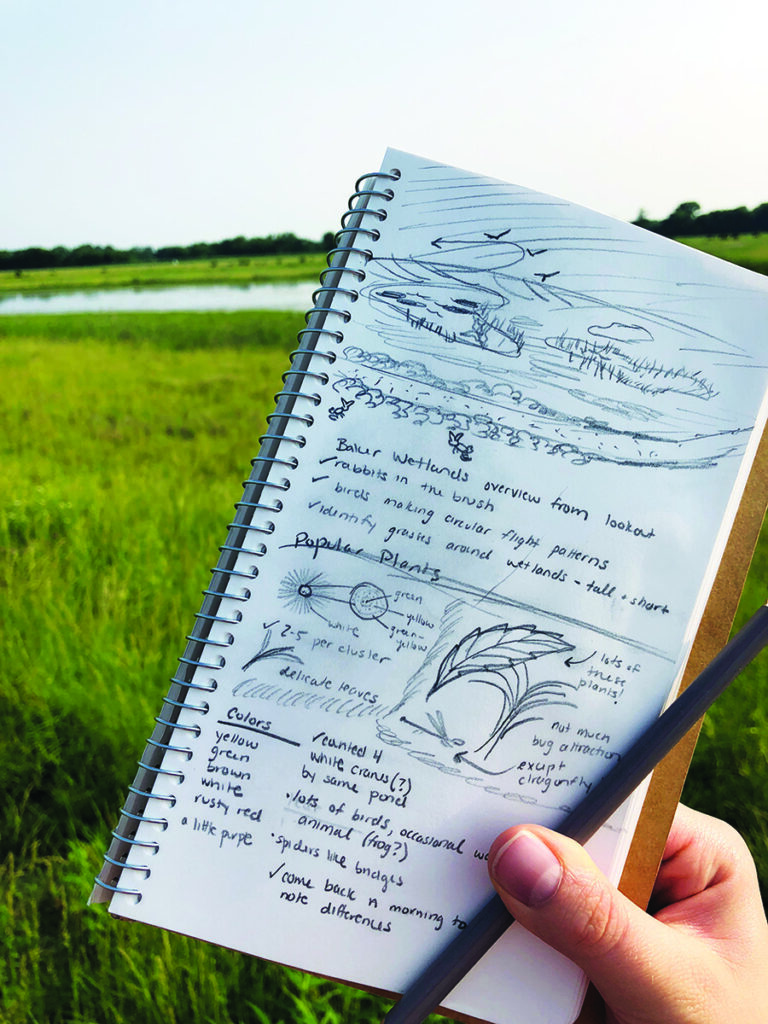 Baker Wetlands overview from lookout
✓ rabbits in the brush
✓ birds making circular flight patterns
✓ identify grasses around wetlands - tall + short
Popular Plants
green
yellow
green-
yellow
white
✓ 2-5 per cluster
delicate leaves
lots of
these
plants!
not much
bug attraction
exept
dragonfly
Colors
yellow
green
brown
white
rusty red
a little purple
✓ counted 4
white cranes(?)
by same pond
• lots of birds, occasional
animal (frog?)
• spiders like bridges
✓ come back n morning to
note differences